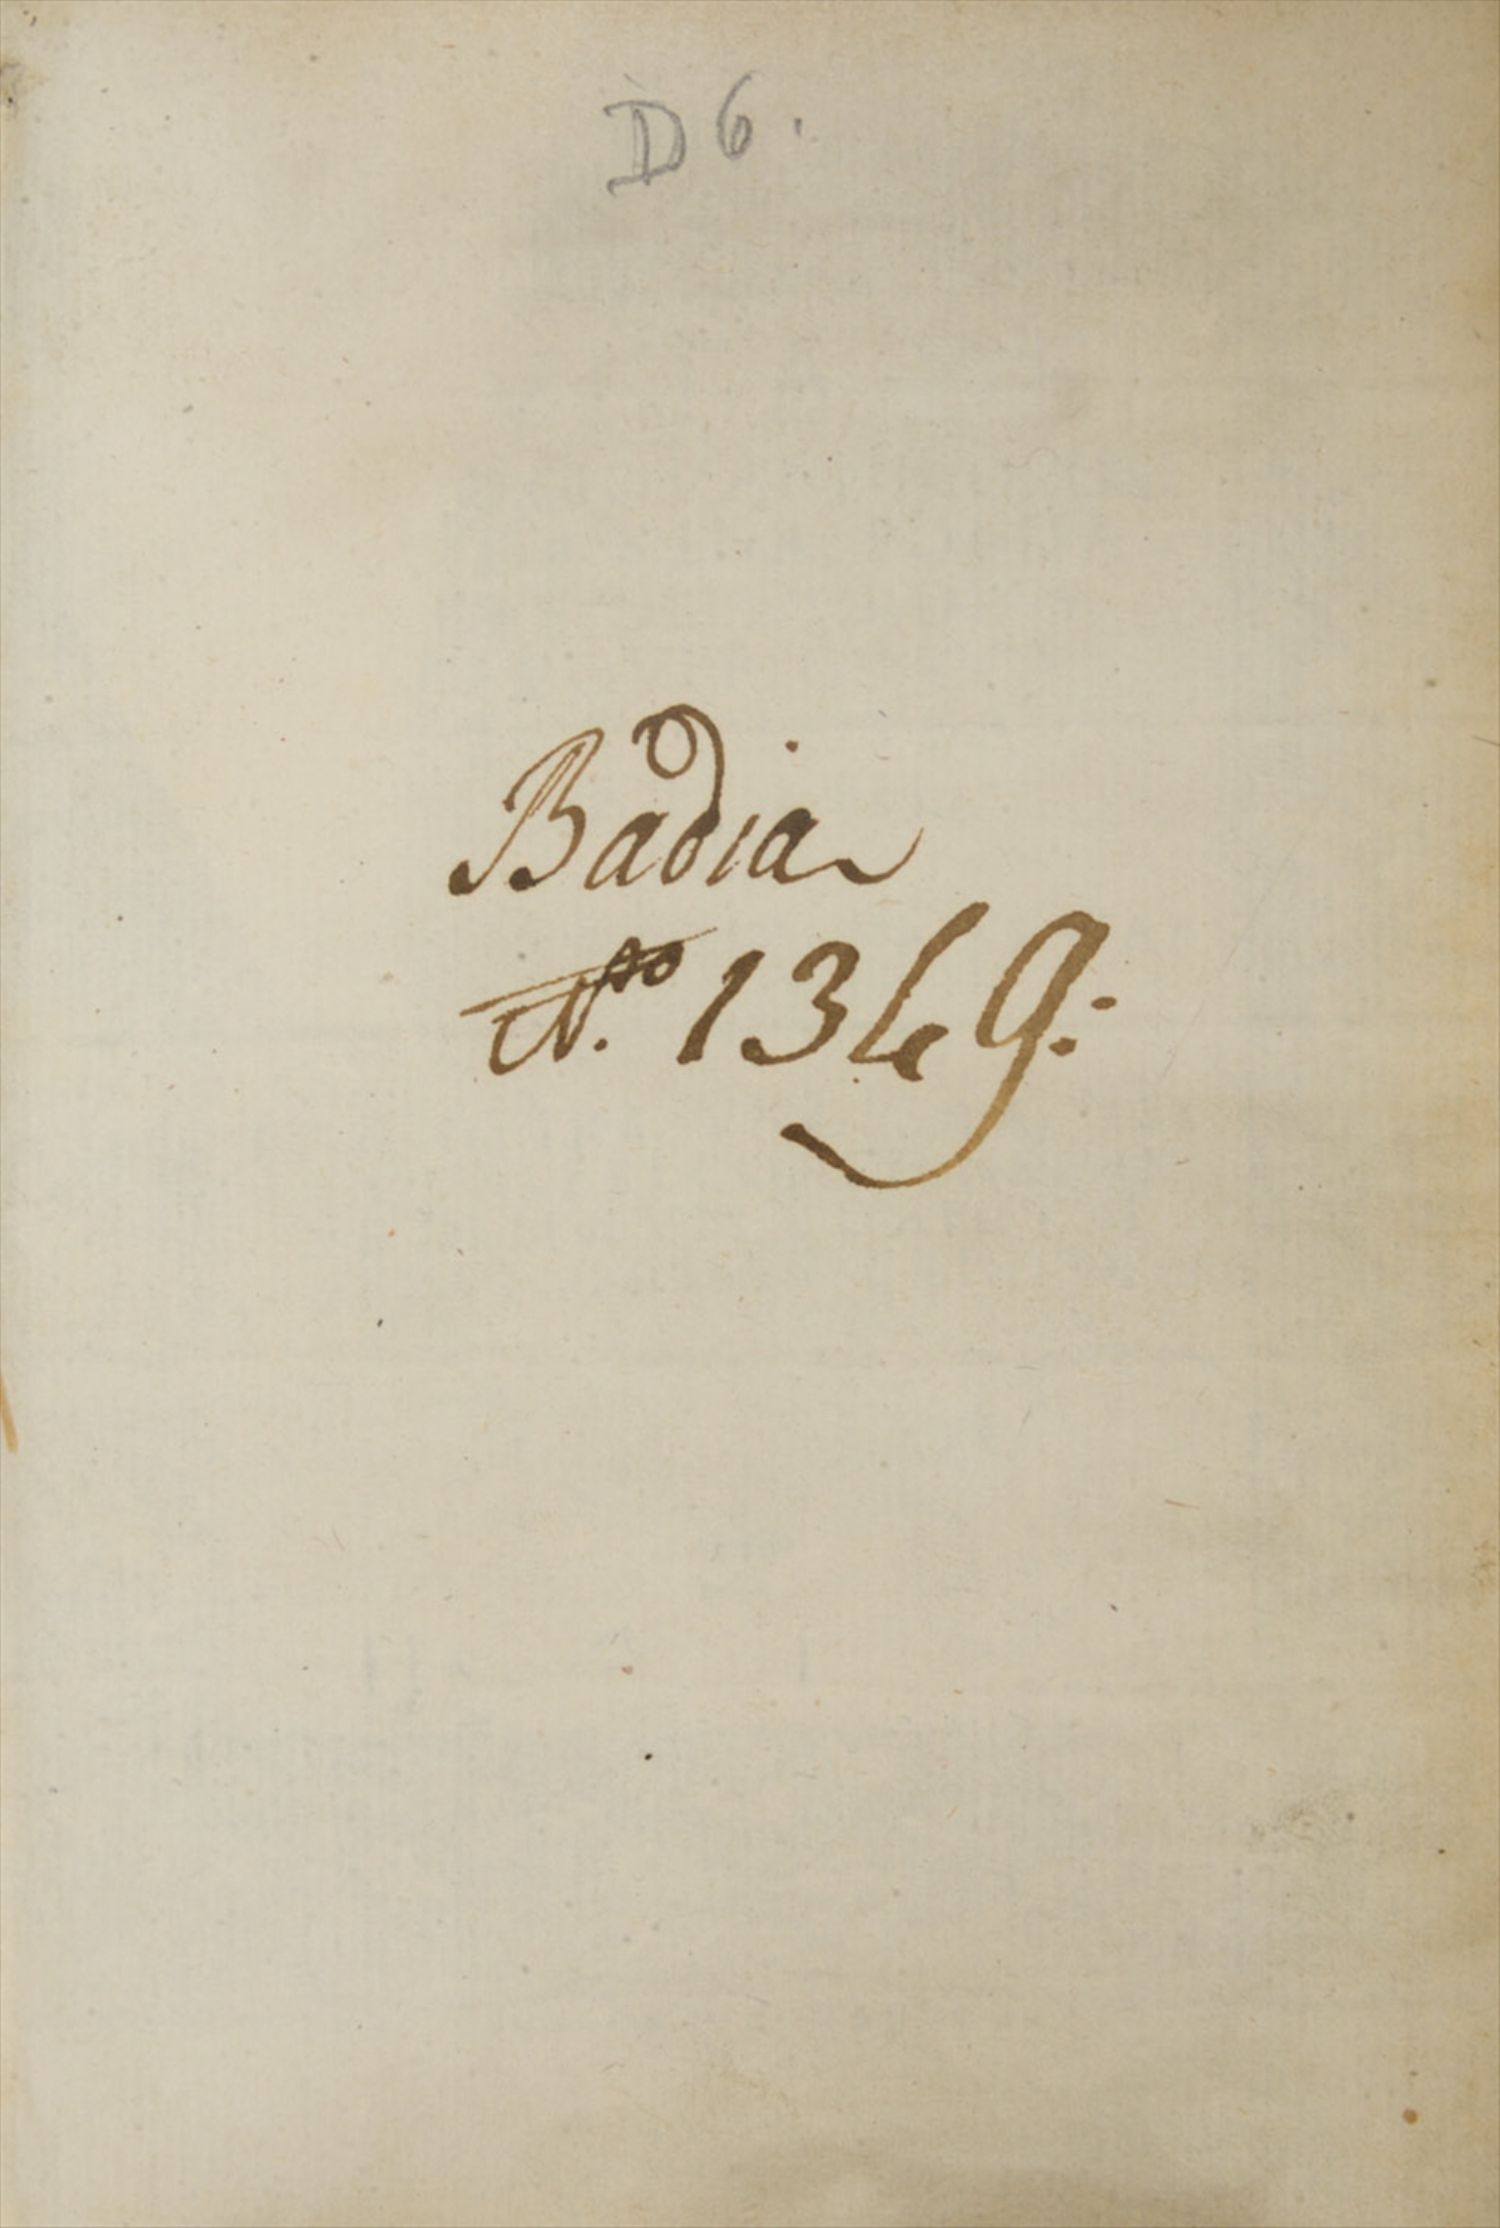 D 6.
Badia
N.ro 1349: